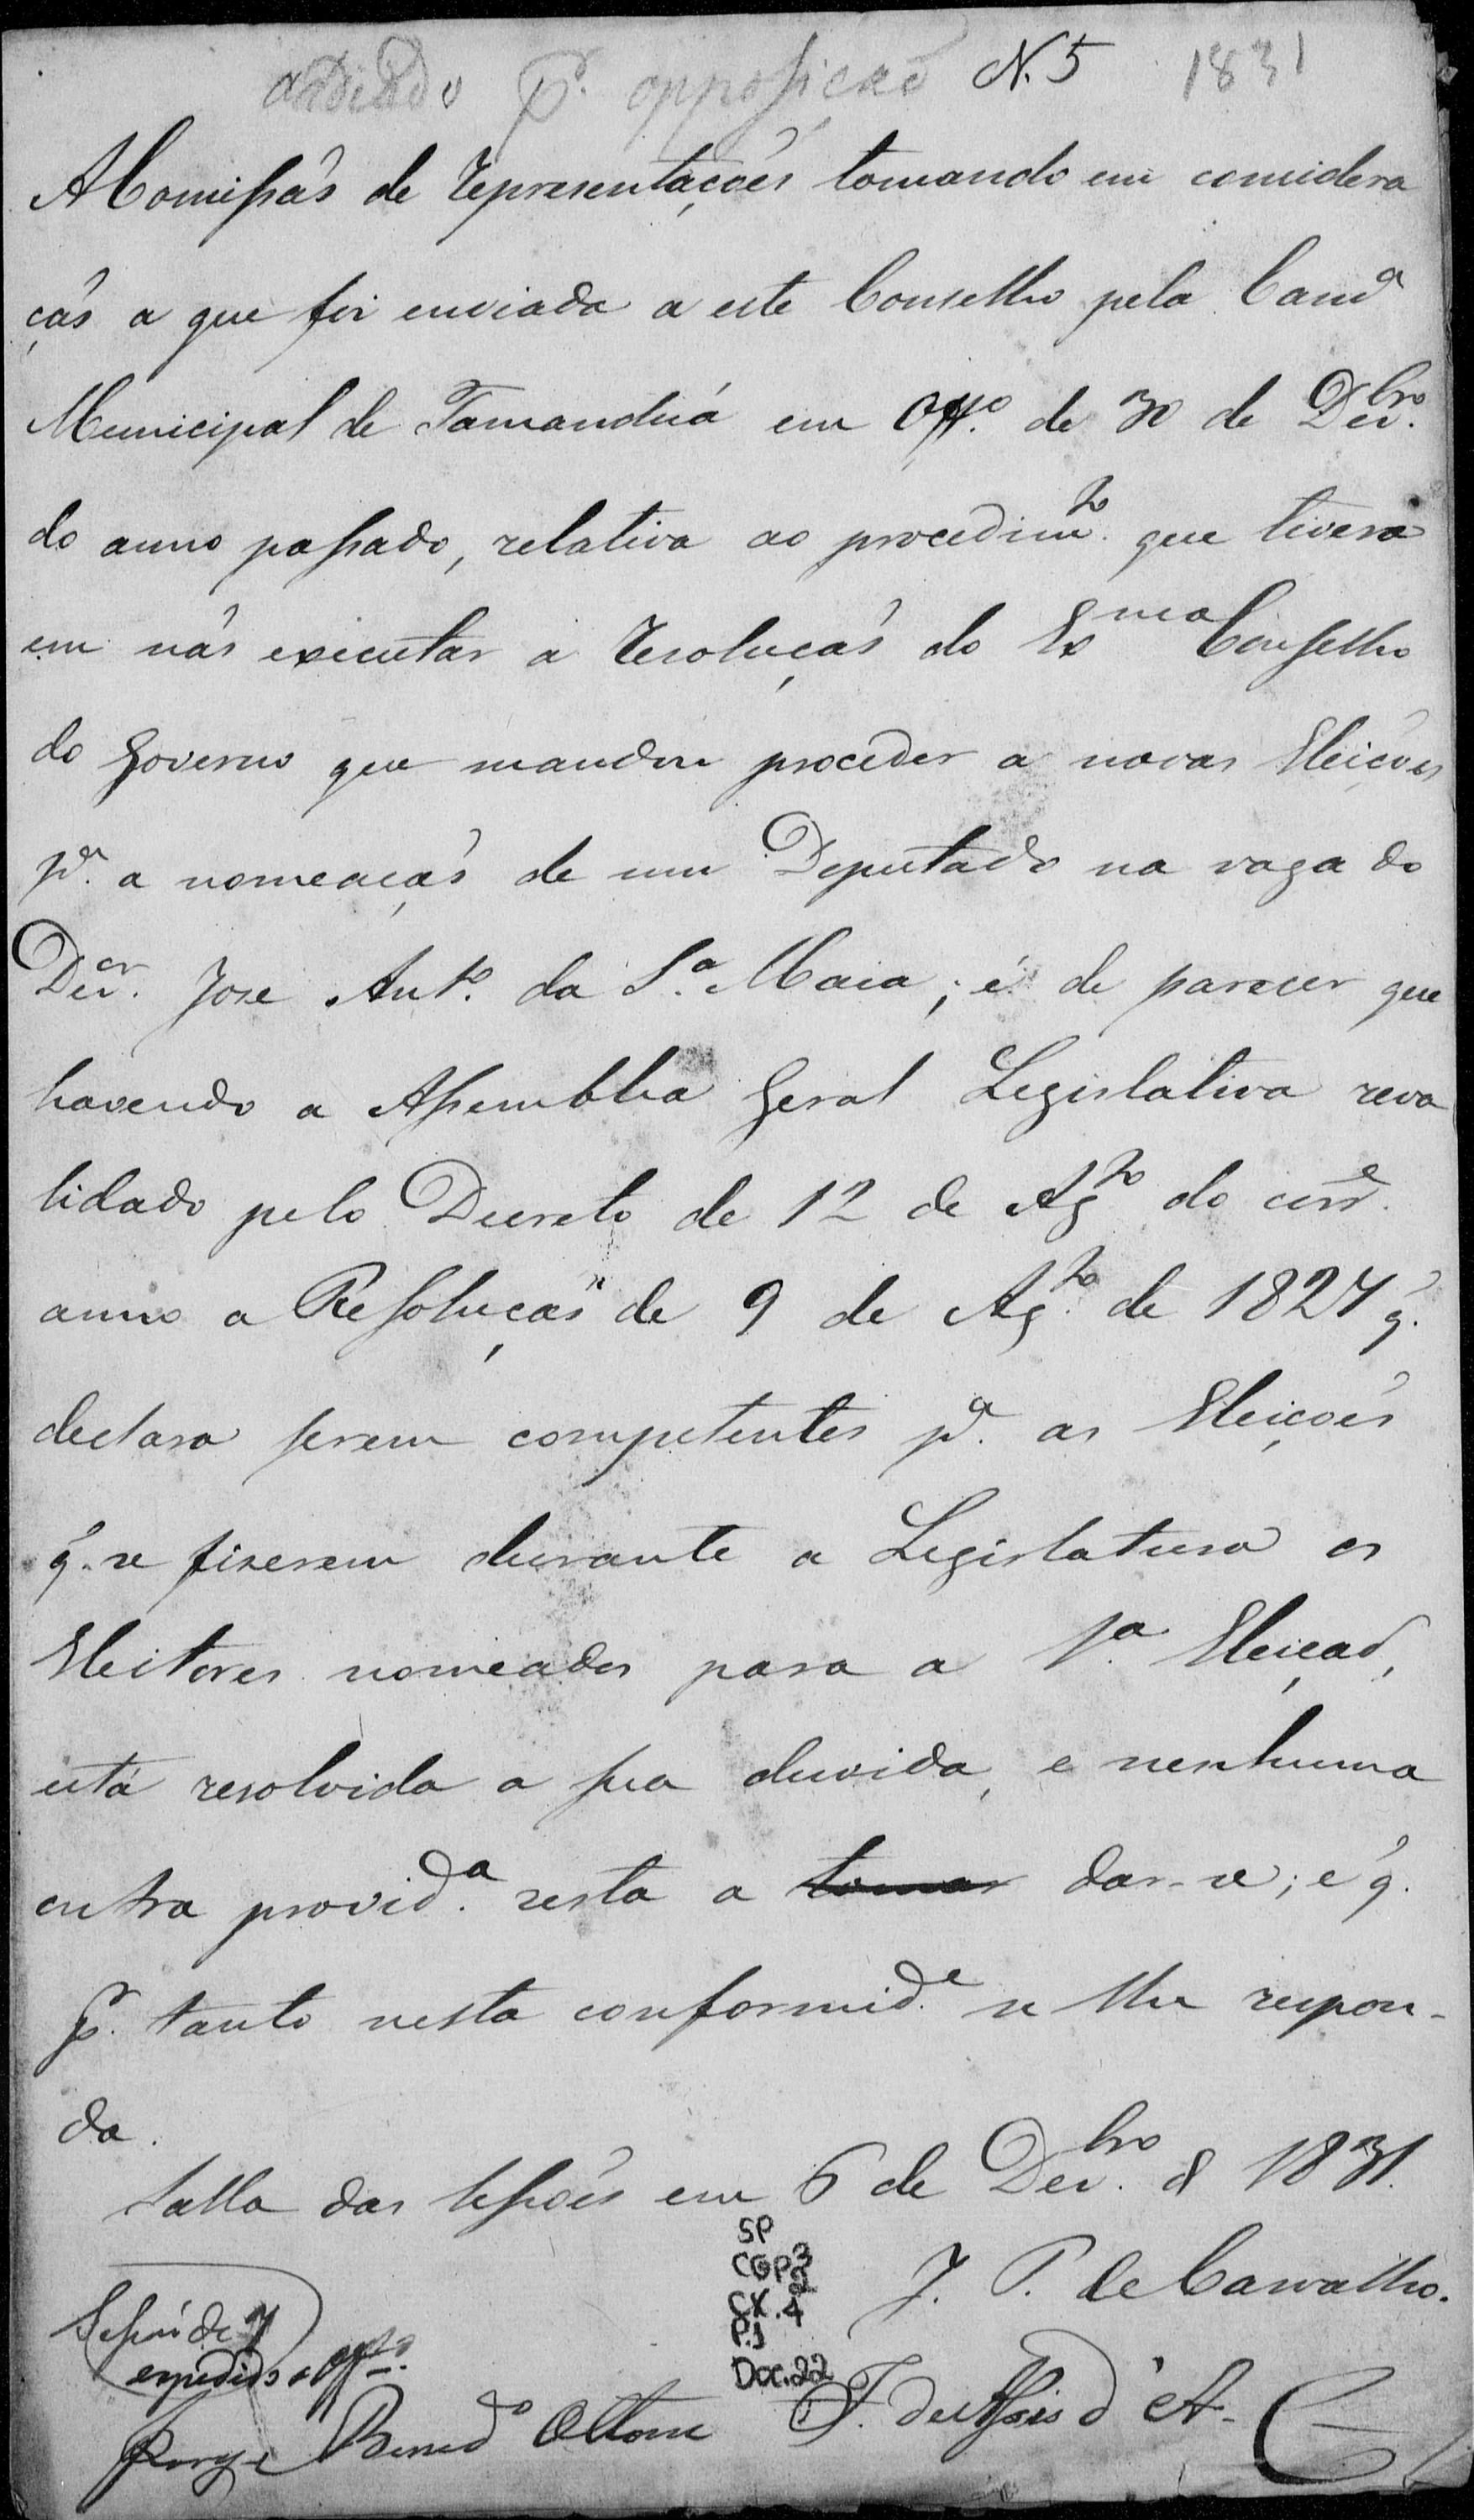 addiado p.r opposição N. 5 1831
A Comissaõ de representaçoẽs tomando em considera
çaõ a que foi enviada a este Conselho pela Camª
Municipal de Tamanduá em Off.º de 30 de Dez.bro
do anno passado, relativa ao procedim.to que tivera
em naõ executar a resoluçaõ do Ex.mo Conselho
do Governo que mandou proceder a novas Eleiçoẽs
p.ª a nomeaçaõ de um Deputado na vaga do
Dez.or Jose Ant.º da S.ª Maia; é de parecer que
havendo a Assemblea Geral Legislativa reva
lidado pelo Decreto de 12 de Ag.to do corr.e
anno a Resoluçaõ de 9 de Ag.to de 1827 q.
declara serem competentes p.ª as Eleiçoẽs
q. se fizerem durante a Legislatura os
Eleitores nomeados para a 1.ª Eleiçaõ,
está resolvida a sua duvida, e nenhuma
outra provid.ª resta a tomar dar-se; e q.
p.r tanto nesta conformid.e se lhe respon-
da.
Salla das Sessoẽs em 6 de Dez.bro de 1831.
SP
CGP 3
2
CX. 4
P.J
Doc. 22
J. P. de Carvalho.
Sessaõ de 7
expedido o Off.º
Jorge Bened.º Ottoni F. de Assis d' A.